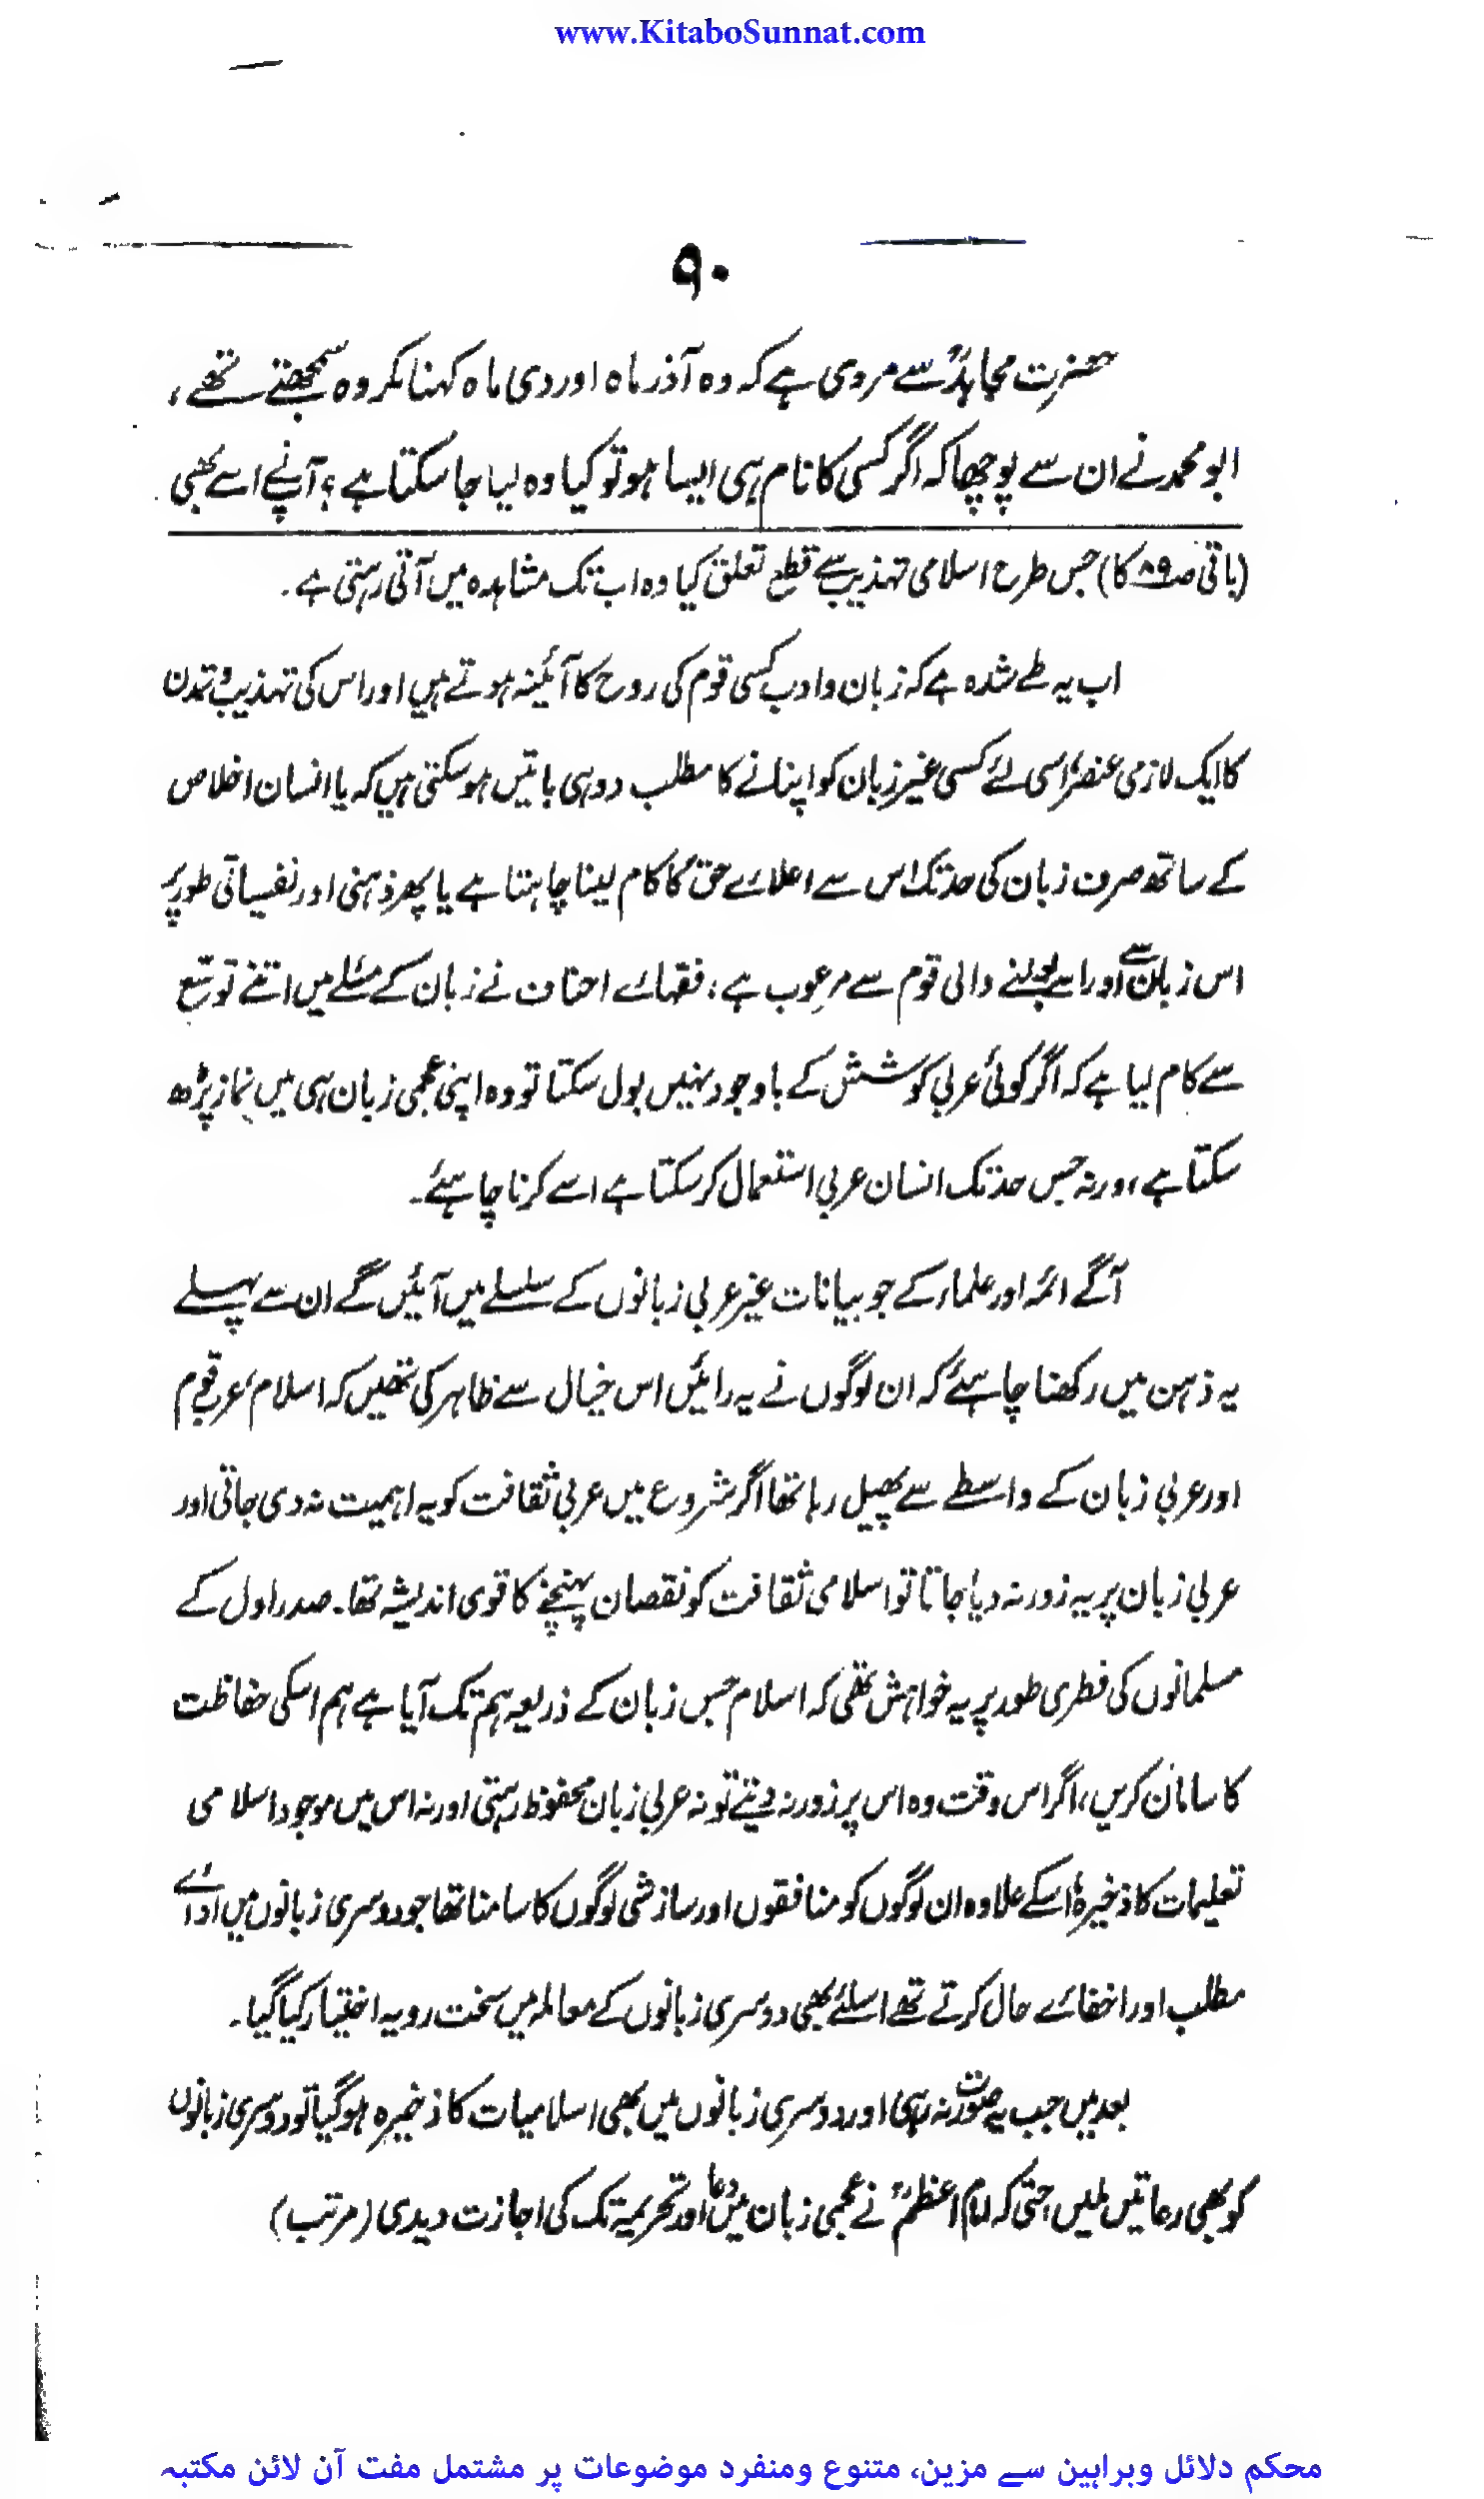 www.KitaboSunnat.com
۹۰
حضرت مجاہدؒ سے مروی ہے کہ وہ آذر ماہ اور دی ماہ کہنا مکروہ سمجھتے تھے،
ابو محمد نے ان سے پوچھا کہ اگر کسی کا نام ہی ایسا ہو تو کیا وہ لیا جا سکتا ہے؟ آپنے اسے بھی
(باقی صـ۸۹ کا) جس طرح اسلامی تہذیب سے قطع تعلق کیا وہ اب تک مشاہدہ میں آتی رہتی ہے۔
اب یہ طے شدہ ہے کہ زبان و ادب کسی قوم کی روح کا آئینہ ہوتے ہیں اور اس کی تہذیب و تمدن
کا ایک لازمی عنصر، اسی لئے کسی غیر زبان کو اپنانے کا مطلب دو ہی باتیں ہو سکتی ہیں کہ یا انسان اخلاص
کے ساتھ صرف زبان کی حد تک اس سے اعلائے حق کا کام لینا چاہتا ہے یا پھر ذہنی اور نفسیاتی طور پر
اس زبان سے اور اسے بولنے والی قوم سے مرعوب ہے، فقہائے احناف نے زبان کے مسئلے میں اتنے توسّع
سے کام لیا ہے کہ اگر کوئی عربی کوشش کے باوجود نہیں بول سکتا تو وہ اپنی عجمی زبان ہی میں نماز پڑھ
سکتا ہے، ورنہ جس حد تک انسان عربی استعمال کر سکتا ہے اسے کرنا چاہئے۔
آگے ائمہ اور علماء کے جو بیانات غیر عربی زبانوں کے سلسلے میں آئیں گے ان سے پہلے
یہ ذہن میں رکھنا چاہئے کہ ان لوگوں نے یہ رائیں اس خیال سے ظاہر کی تھیں کہ اسلام، عرب قوم
اور عربی زبان کے واسطے سے پھیل رہا تھا اگر شروع میں عربی ثقافت کو یہ اہمیت نہ دی جاتی اور
عربی زبان پر یہ زور نہ دیا جاتا تو اسلامی ثقافت کو نقصان پہنچنے کا قوی اندیشہ تھا۔ صدر اول کے
مسلمانوں کی فطری طور پر یہ خواہش تھی کہ اسلام جس زبان کے ذریعہ ہم تک آیا ہے ہم اسکی حفاظت
کا سامان کریں، اگر اس وقت وہ اس پر زور نہ دیتے تو نہ عربی زبان محفوظ رہتی اور نہ اس میں موجود اسلامی
تعلیمات کا ذخیرہ، اسکے علاوہ ان لوگوں کو منافقوں اور سازشی لوگوں کا سامنا تھا جو دوسری زبانوں میں ادائے
مطلب اور اخفائے حال کرتے تھے اسلئے بھی دوسری زبانوں کے معاملہ میں سخت رویہ اختیار کیا گیا۔
بعد میں جب یہ صورت نہ رہی اور دوسری زبانوں میں بھی اسلامیات کا ذخیرہ ہو گیا تو دوسری زبانوں
کو بھی رعایتیں ملیں حتیٰ کہ امام اعظمؒ نے عجمی زبان میں دعا اور تحریمہ تک کی اجازت دیدی (مرتب)
محکم دلائل وبراہین سے مزین، متنوع ومنفرد موضوعات پر مشتمل مفت آن لائن مکتبہ